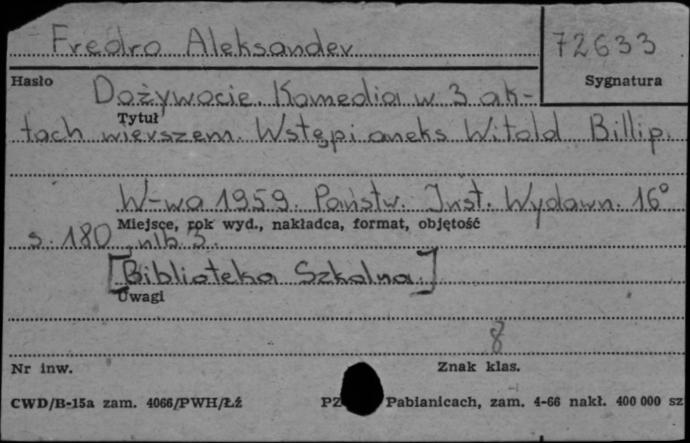 Fredro Aleksander
72633
Hasło
Sygnatura
Dożywocie. Komedia w 3 ak-
Tytuł
tach wierszem. Wstęp i aneks Witold Billip.
W-wa 1959. Państw. Inst. Wydawn. 16°
Miejsce, rok wyd., nakładca, format, objętość
s. 180, nlb 3.
[Biblioteka Szkolna.]
Uwagi
8
Nr inw.
Znak klas.
CWD/B-15a zam. 4066/PWH/Łź
PZ Pabianicach, zam. 4-66 nakł. 400 000 sz